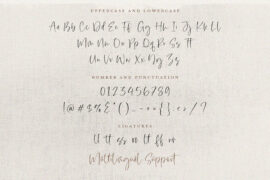 UPPERCASE AND LOWERCASE
Aa Bb Cc Dd Ee Ff Gg Hh Ii Jj Kk Ll
Mm Nn Oo Pp Qq Rr Ss Tt
Uu Vv Ww Xx Yy Zz
NUMBER AND PUNCTUATION
0123456789
LIGATURES
Multilingual Support